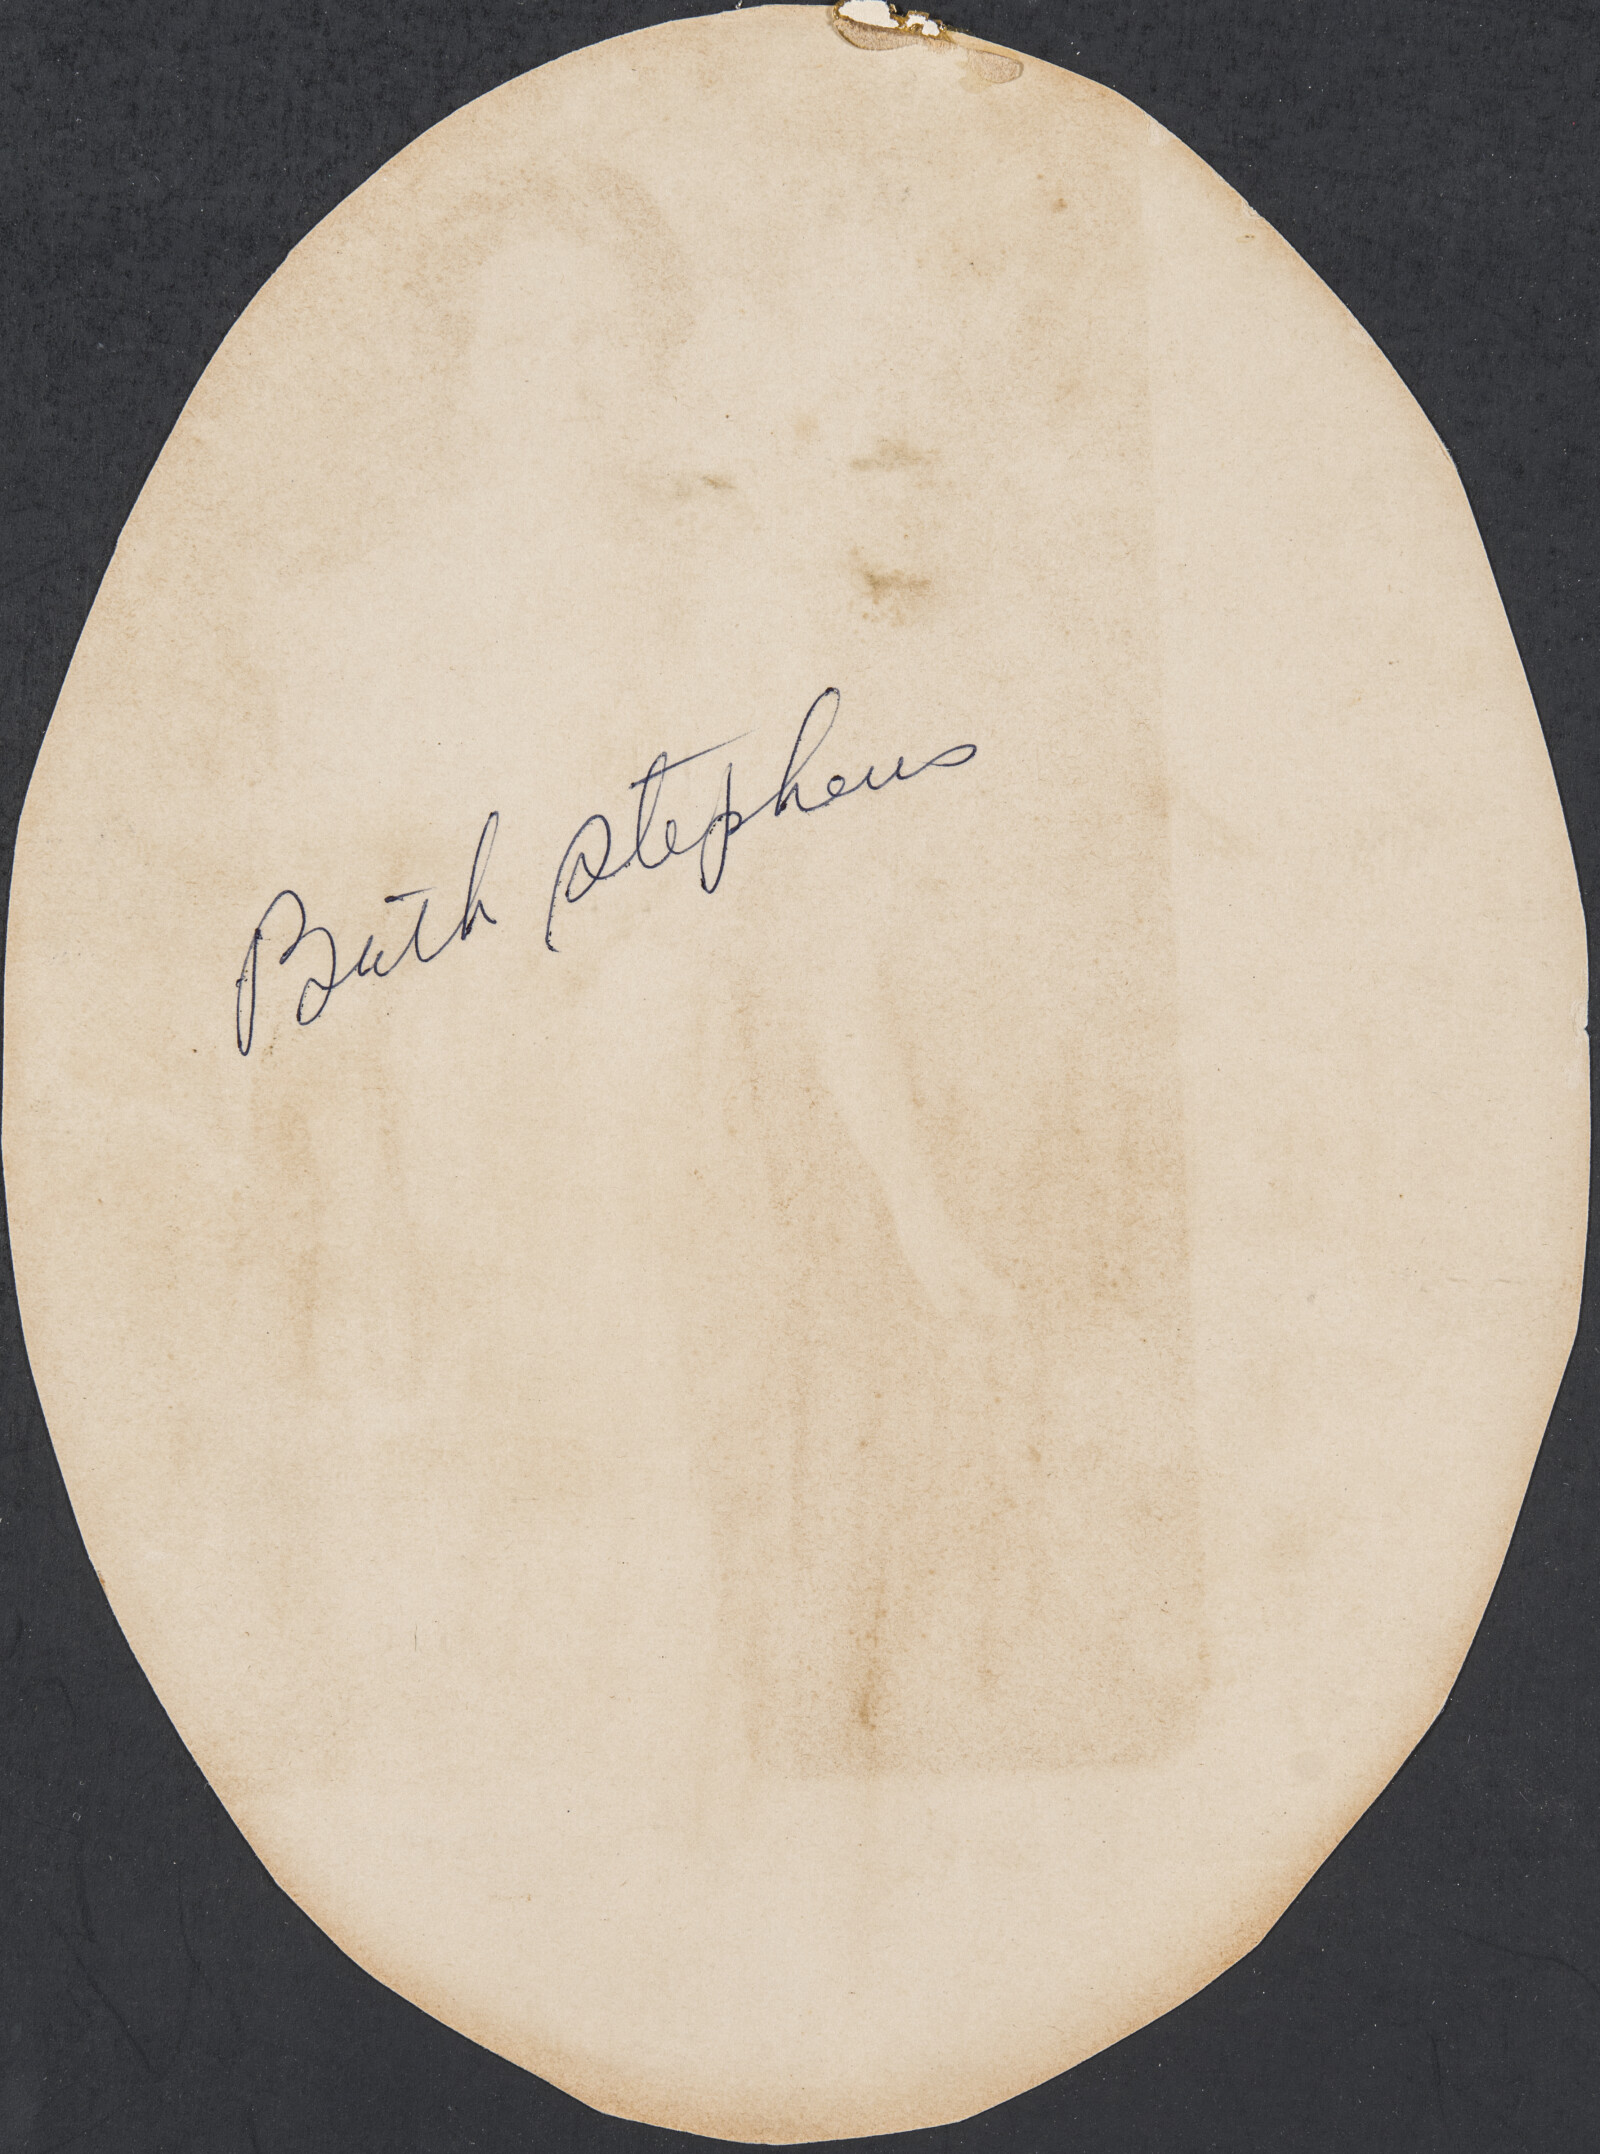 Ruth Stephens